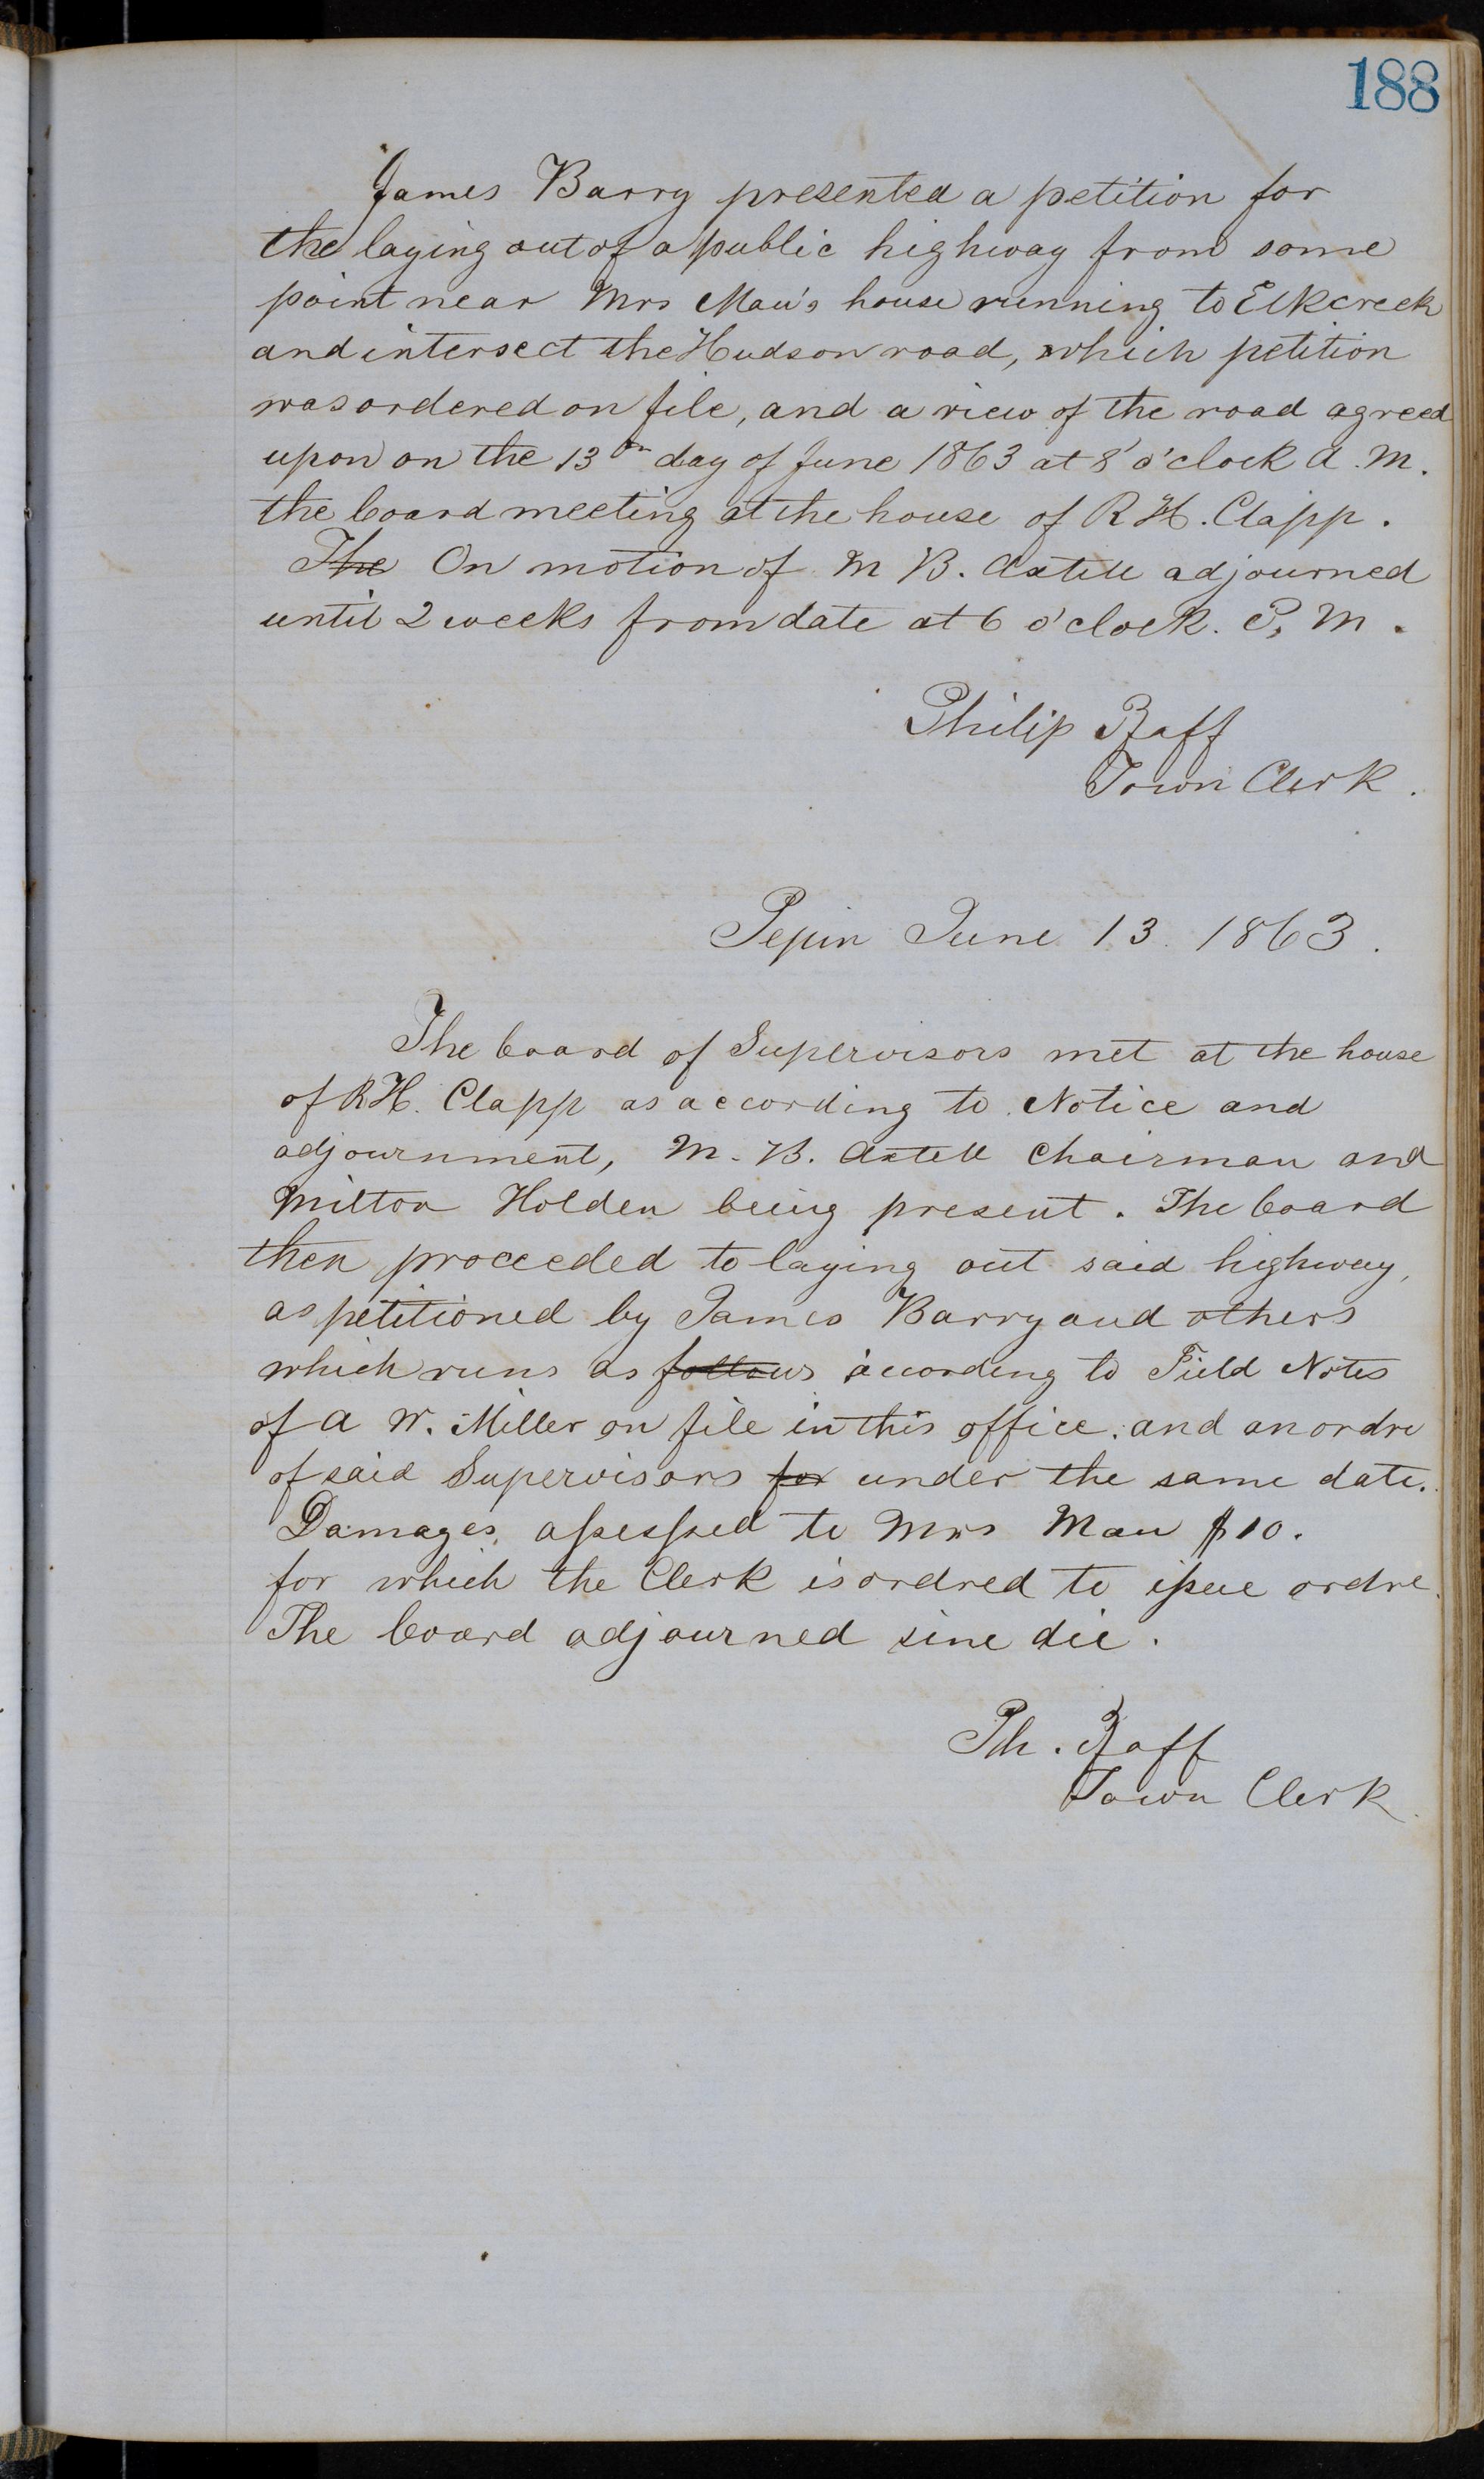 188
James Barry presented a petition for
the laying out of a public highway from some
point near Mrs Mau's house running to Elkcreek
and intersect the Hudson road, which petition
was ordered on file, and a view of the road agreed
upon on the 13th day of June 1863 at 8 o'clock A. M.
the board meeting at the house of R H. Clapp.
The On motion of M B. Axtell adjourned
until 2 weeks from date at 6 o'clock. P. M.
Philip Zaff
Town Clerk.
Pepin June 13. 1863.
The board of Supervisors met at the house
of R H. Clapp as according to Notice and
adjournment, M. B. Axtell Chairman and
Milton Holden being present. The board
then proceeded to laying out said highway,
as petitioned by James Barry and others
which runs as follows according to Field Notes
of A W. Miller on file in this office. and an ordre
of said Supervisors for under the same date.
Damages, assessed to Mrs Mau $10.
for which the Clerk is ordred to issue ordre.
The board adjourned sine die.
Ph. Zaff
Town Clerk